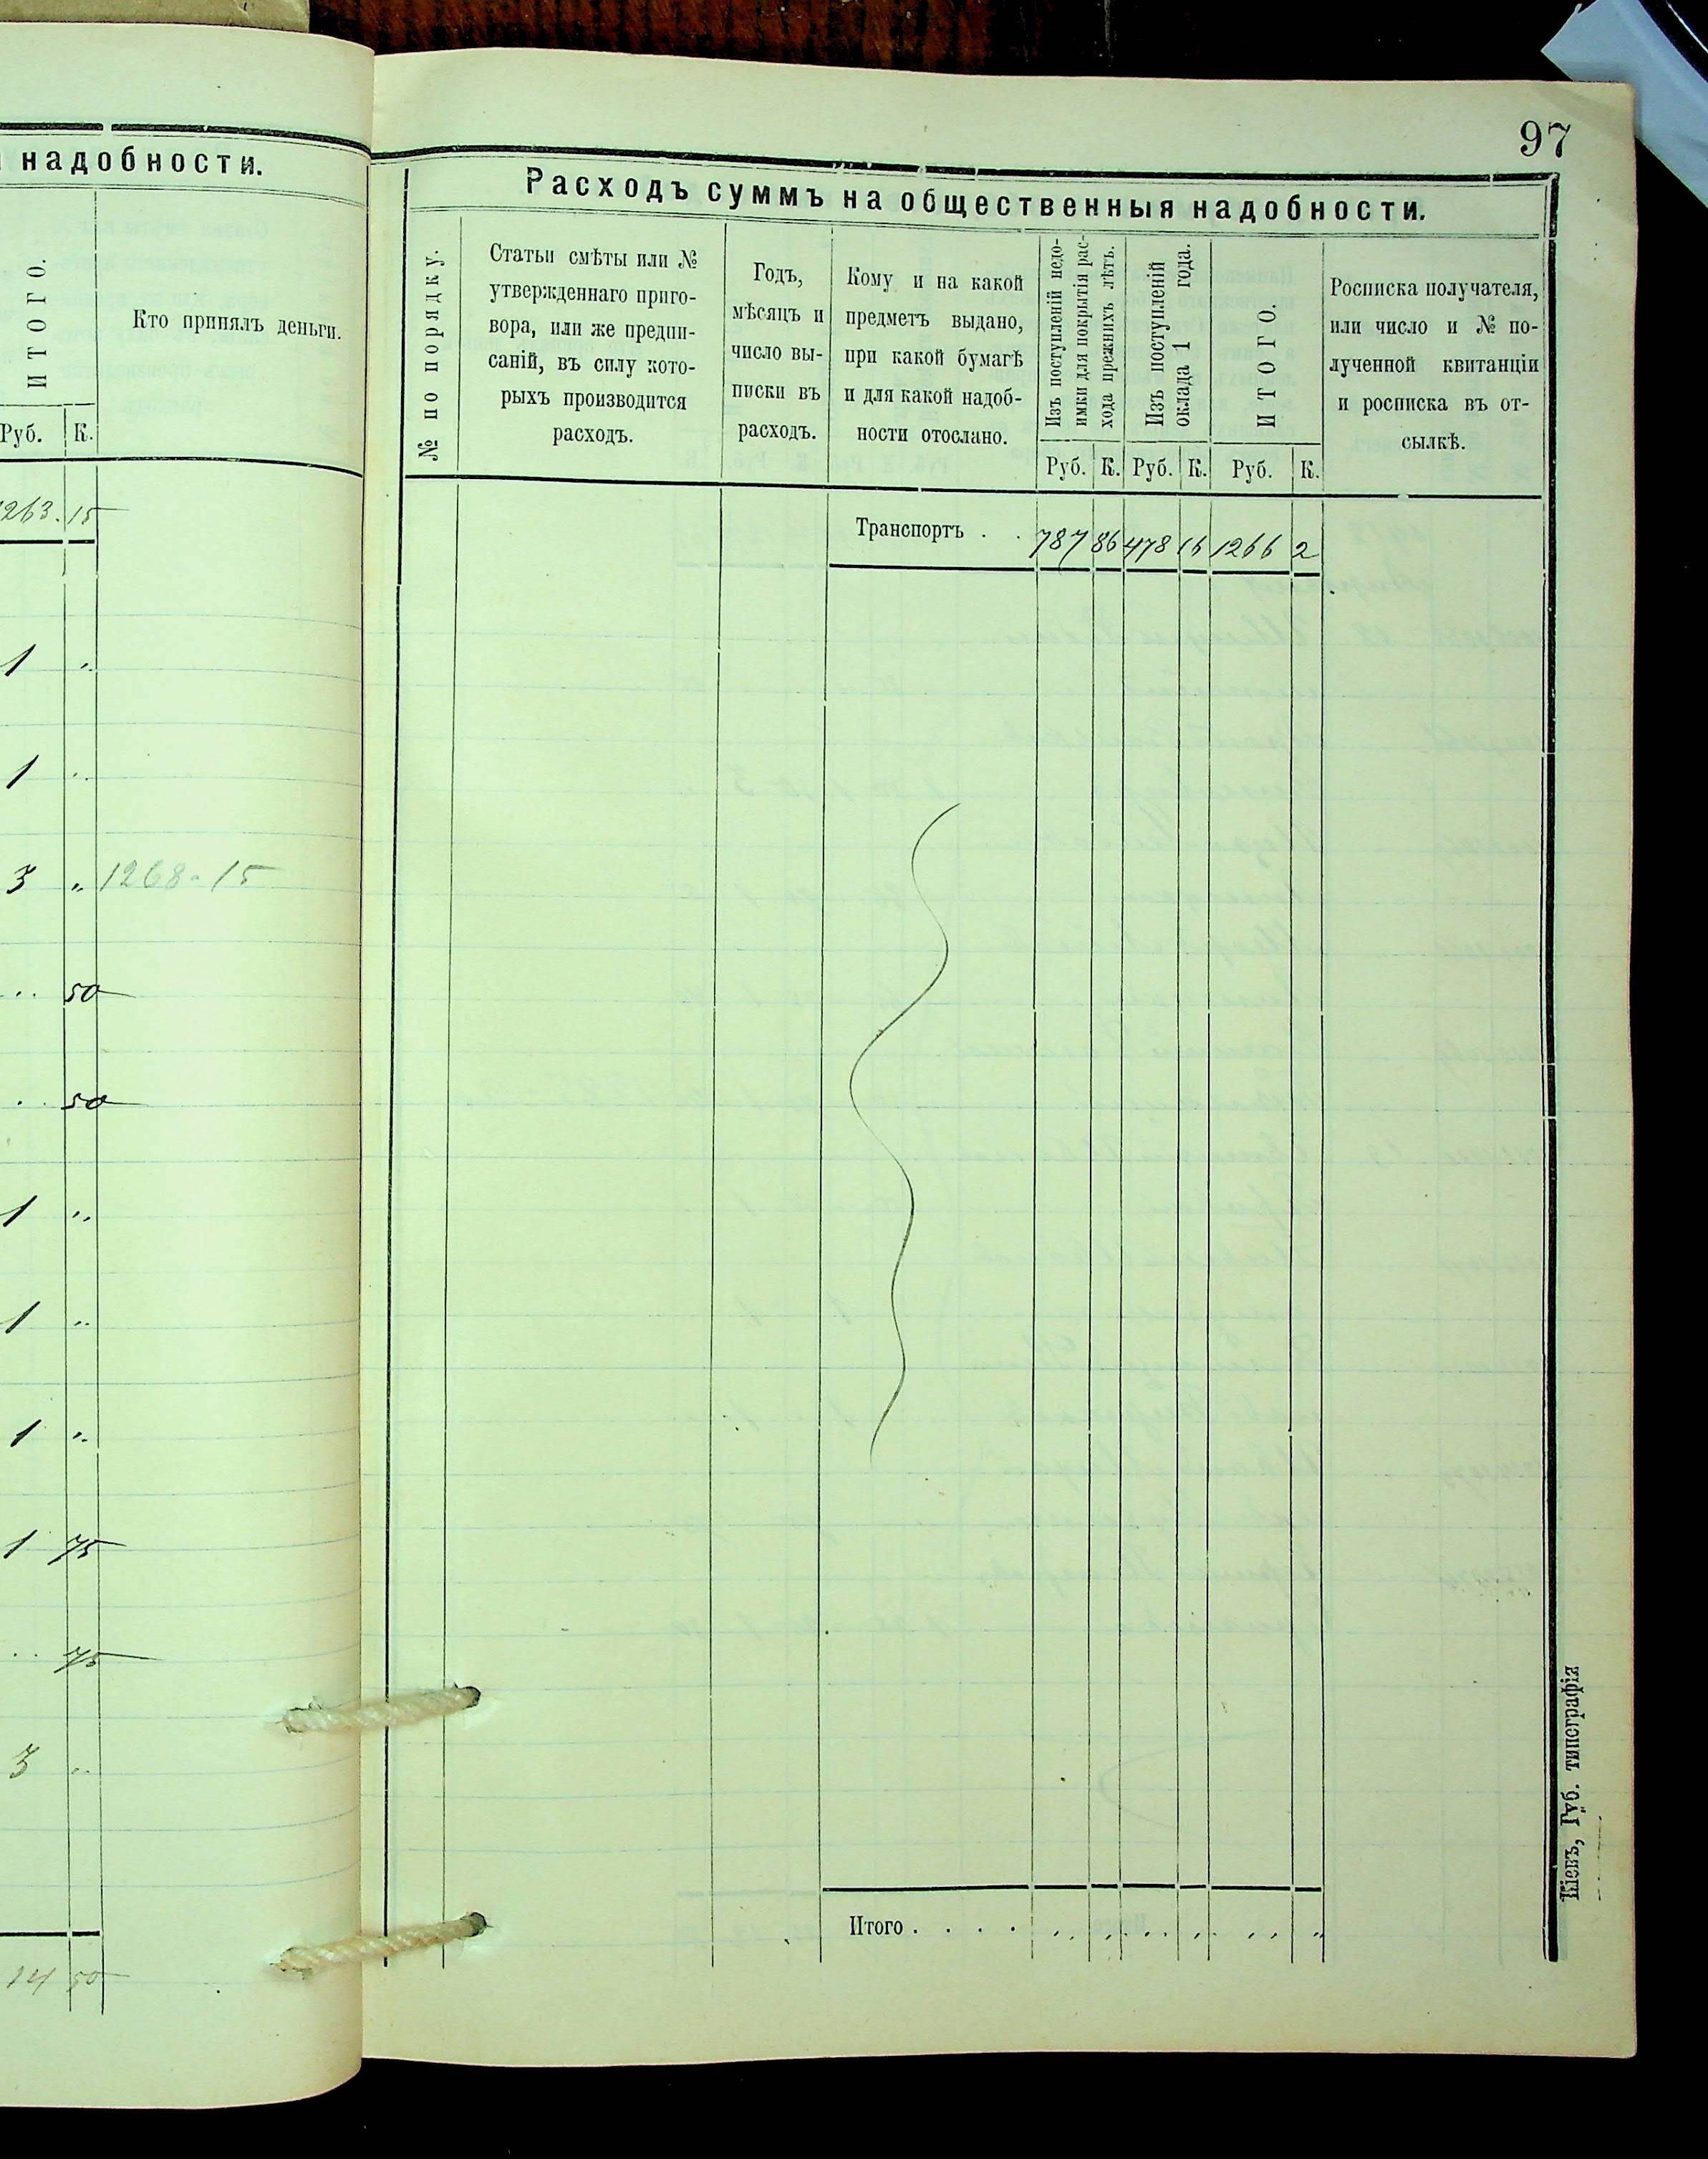 надобности.
ИТОГО.
Кто принялъ деньги.
Руб. К.
1263. 15
1 "
1 "
3 " 1268-15
.. 50
.. 50
1 "
1 "
1 "
1 75
.. 75
3 "
14 50
97
Расходъ суммъ на общественныя надобности.
№ по порядку.
Статьи смѣты или №
утвержденнаго приго-
вора, или же предпи-
саній, въ силу кото-
рыхъ производится
расходъ.
Годъ,
мѣсяцъ и
число вы-
писки въ
расходъ.
Кому и на какой
предметъ выдано,
при какой бумагѣ
и для какой надоб-
ности отослано.
Изъ поступленій недо-
имки для покрытія рас-
хода прежнихъ лѣтъ.
Изъ поступленій
оклада 1 года.
ИТОГО.
Росписка получателя,
или число и № по-
лученной квитанціи
и росписка въ от-
сылкѣ.
Руб. К. Руб. К. Руб. К.
Транспортъ . . 787 86 478 16 1266 2
Итого . . . .
Кіевъ, Губ. типографія